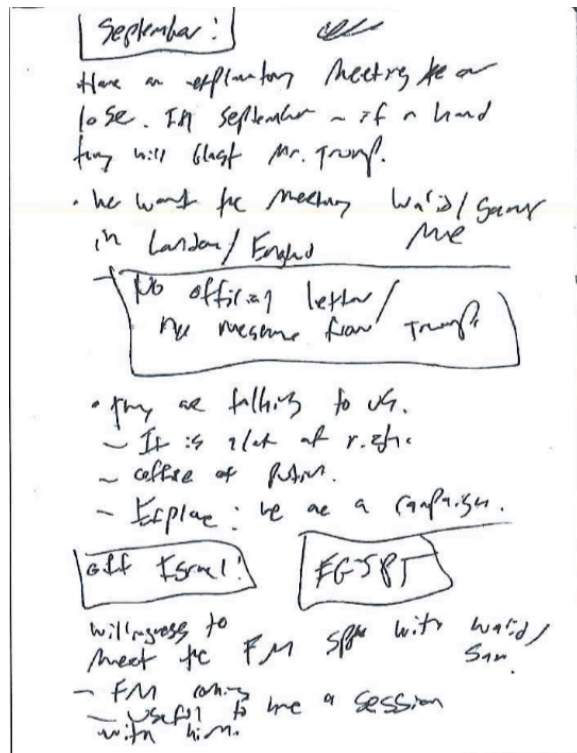 September:
Have an exploratory meeting or
lose. In September – if a hand
they will blast Mr. Trump.
• we want the meeting Walid/
me
in London/England
No official letter/
no message from Trump.
• they are talking to us.
– It is a lot of risk.
– office of
– Explore: we are a campaign.
off Israel!
EGYPT
willingness to
meet the FM with Walid/
– FM coming
– Useful to have a session
with him.